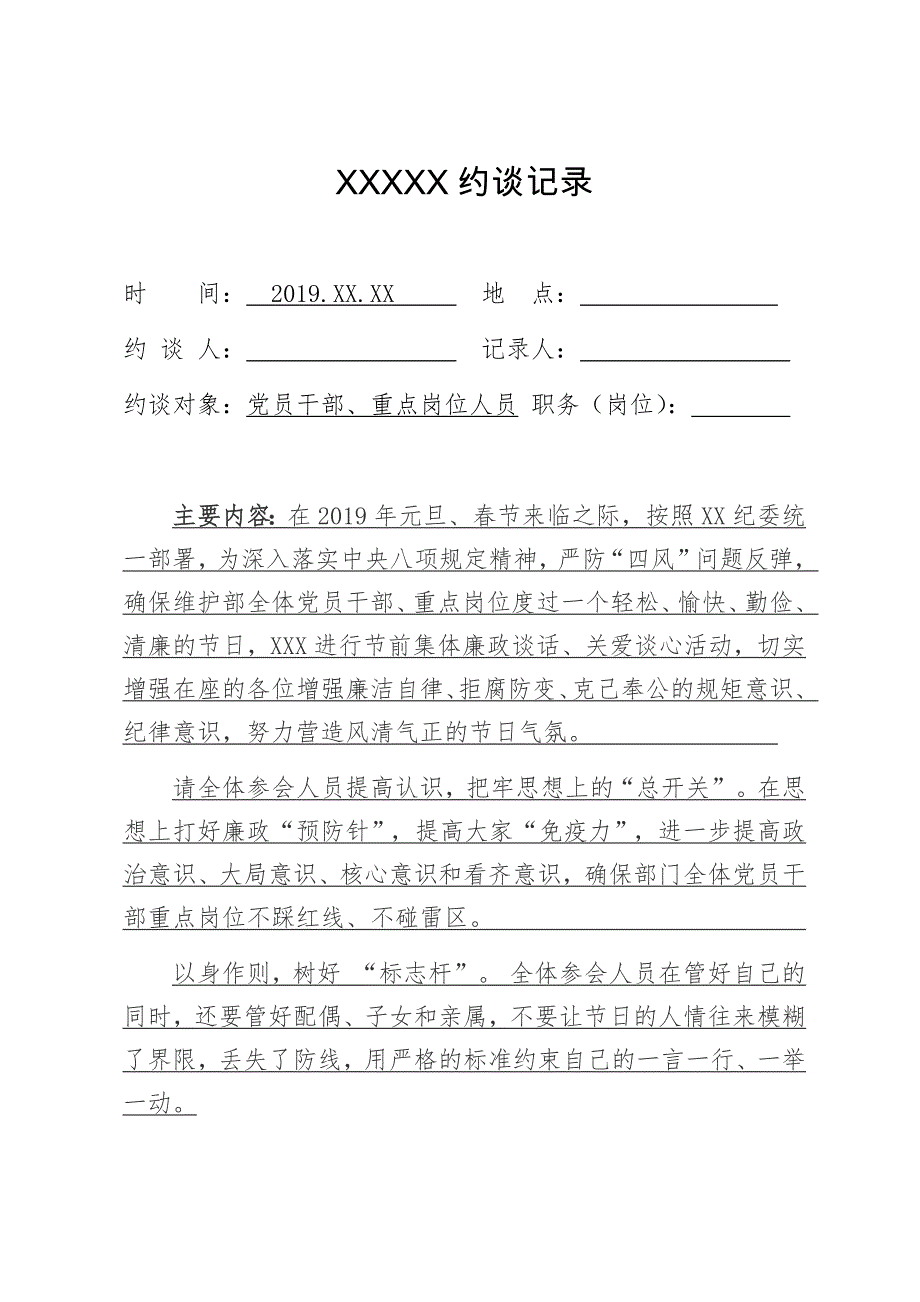 XXXXX 约谈记录
时　　间：　2019.XX.XX　　地　点：
约 谈 人：　　　　　记录人：
约谈对象：党员干部、重点岗位人员 职务（岗位）：
主要内容：在 2019 年元旦、春节来临之际，按照 XX 纪委统
一部署，为深入落实中央八项规定精神，严防“四风”问题反弹，
确保维护部全体党员干部、重点岗位度过一个轻松、愉快、勤俭、
清廉的节日，XXX 进行节前集体廉政谈话、关爱谈心活动，切实
增强在座的各位增强廉洁自律、拒腐防变、克己奉公的规矩意识、
纪律意识，努力营造风清气正的节日气氛。
请全体参会人员提高认识，把牢思想上的“总开关”。在思
想上打好廉政“预防针”，提高大家“免疫力”，进一步提高政
治意识、大局意识、核心意识和看齐意识，确保部门全体党员干
部重点岗位不踩红线、不碰雷区。
以身作则，树好 “标志杆”。 全体参会人员在管好自己的
同时，还要管好配偶、子女和亲属，不要让节日的人情往来模糊
了界限，丢失了防线，用严格的标准约束自己的一言一行、一举
一动。